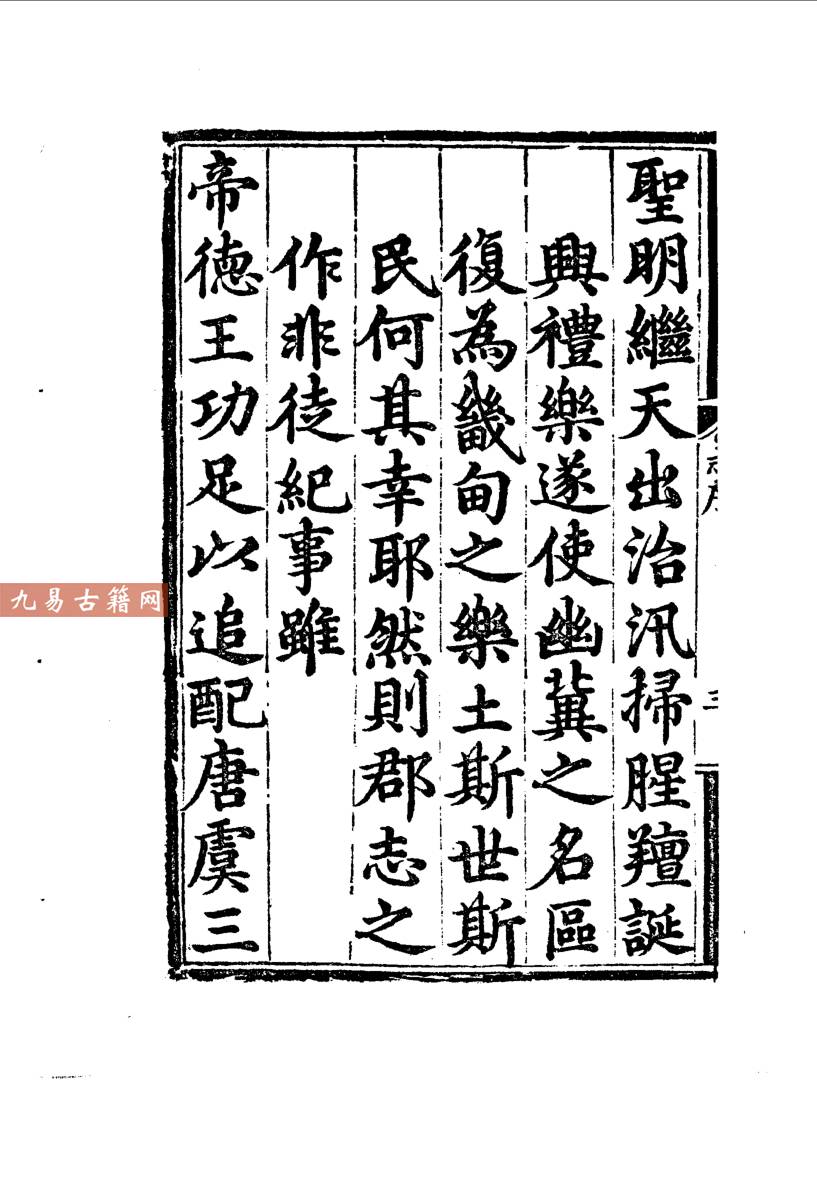 聖明繼天出治汛掃腥羶誕
興禮樂遂使幽冀之名區
復為畿甸之樂土斯世斯
民何其幸耶然則郡志之
作非徒紀事雖
帝德王功足以追配唐虞三
三
九易古籍网